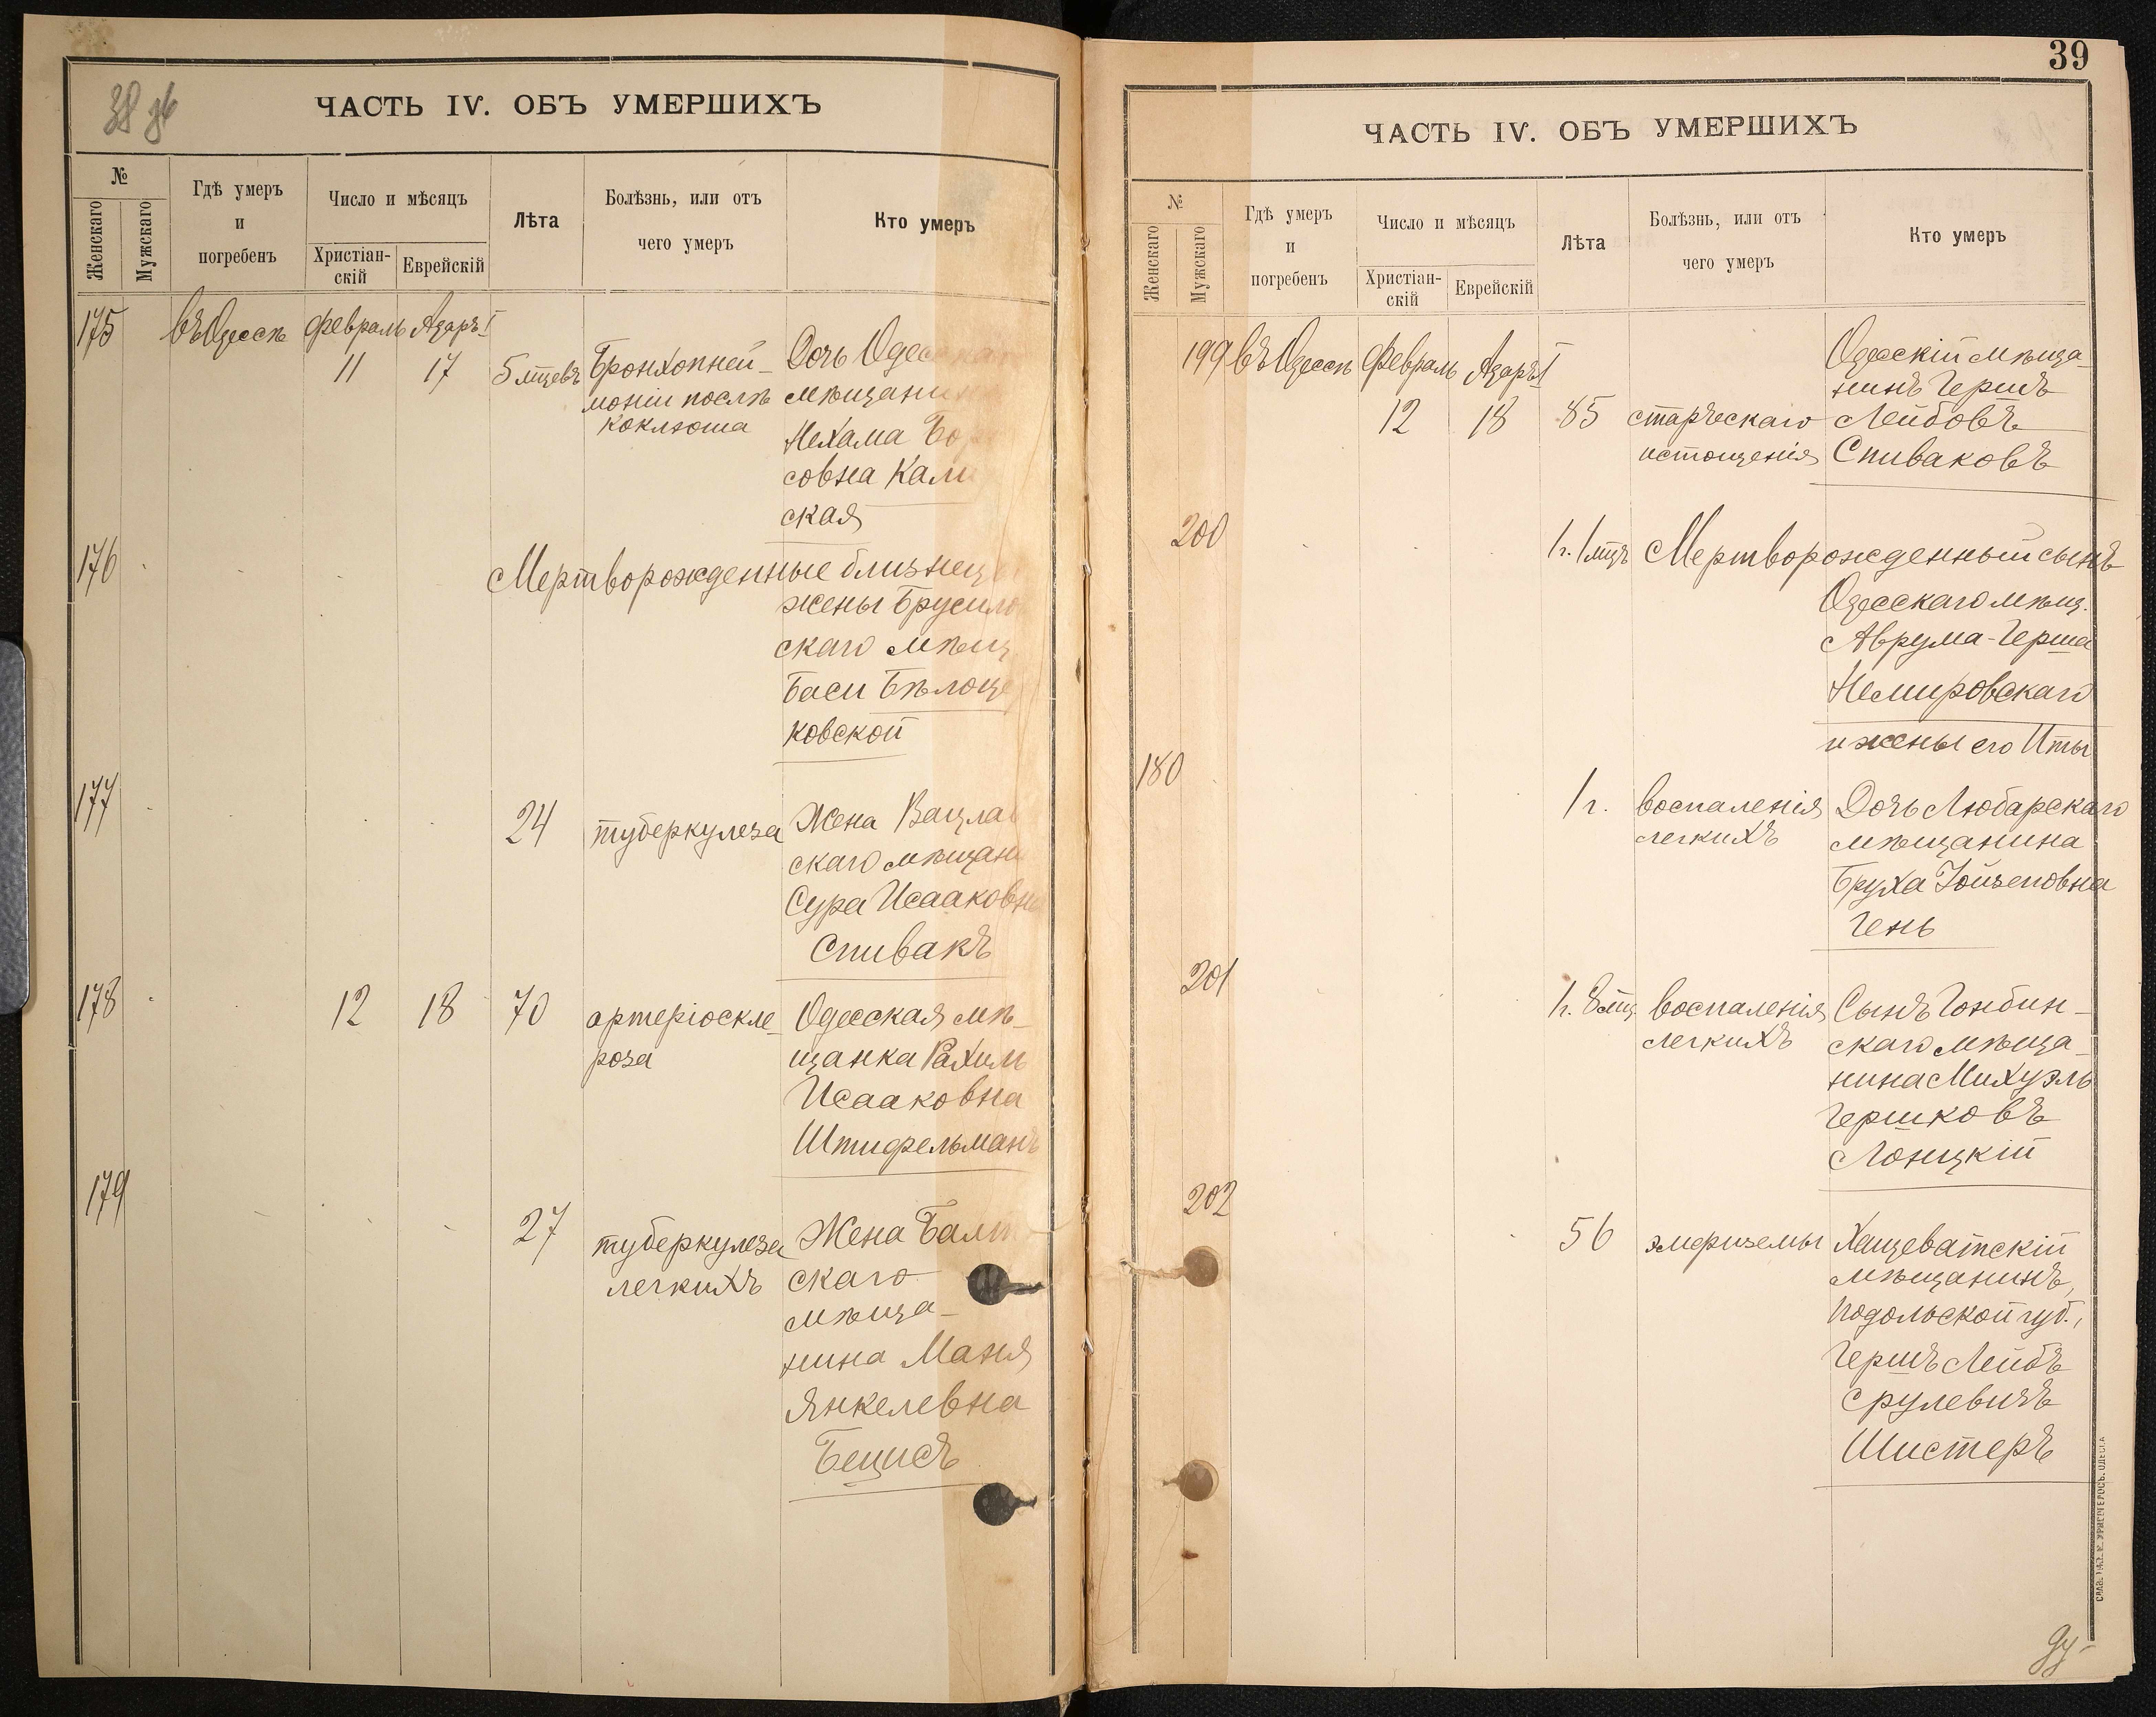 38 об
ЧАСТЬ IV. ОБЪ УМЕРШИХЪ
№
Женскаго
Мужскаго
Гдѣ умеръ
и
погребенъ
Число и мѣсяцъ
Христіан-
скій
Еврейскій
Лѣта
Болѣзнь, или отъ
чего умеръ
Кто умеръ
175 въ Одессѣ Февраль Адаръ I
11 17 5 мцевъ Бронхопней- Дочь Одесскаго
моніи послѣ мѣщанина
коклюша Нехама Бори
совна Кали
ская
176 Мертворожденные близнецы
жены Брусилов
скаго мѣщ
Баси Бѣлоцер
ковской
177
24 туберкулеза Жена Вацлав
скаго мѣщани
Сура Исааковна
Спивакъ
178 12 18 70 артеріоскле- Одесская мѣ-
роза щанка Рахиль
Исааковна
Штифельманъ
179
27 туберкулеза Жена Балт
легкихъ скаго
мѣща-
нина Маня
Янкелевна
Бецисъ
39
ЧАСТЬ IV. ОБЪ УМЕРШИХЪ
№
Женскаго
Мужскаго
Гдѣ умеръ
и
погребенъ
Число и мѣсяцъ
Христіан-
скій
Еврейскій
Лѣта
Болѣзнь, или отъ
чего умеръ
Кто умеръ
199 въ Одессѣ Февраль Адаръ I Одесскій мѣща-
нинъ Гершъ
12 18 85 старческаго Лейбовъ
истощенія Спиваковъ
200
1 г. 1 мцъ Мертворожденный сынъ
Одесскаго мѣщ.
Аврума-Герша
Немировскаго
и жены его Иты
180
1 г. воспаленія Дочь Любарскаго
легкихъ мѣщанина
Бруха Іойзеповна
Гень
201
1 г. 8 мц воспаленія Сынъ Гонбин-
легкихъ скаго мѣща-
нина Михуэль
Гершковъ
Лонцкій
202
56 эмфиземы Хащеватскій
мѣщанинъ,
Подольской губ.,
Гершъ Лейбъ
Срулевичъ
Шистеръ